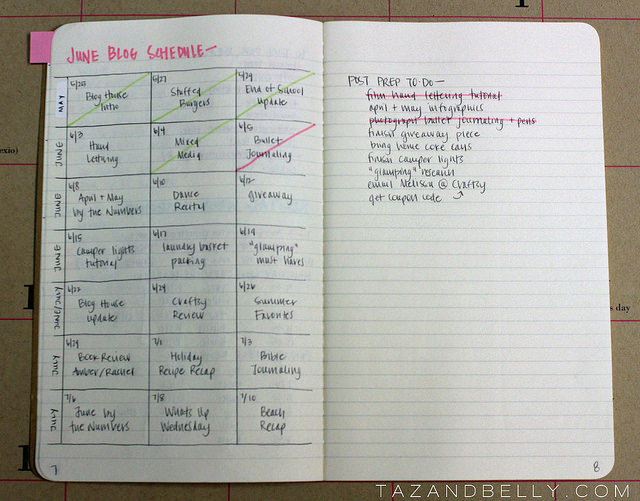 JUNE BLOG SCHEDULE—
MAY
5/25
Blog House
Intro
5/27
Stuffed
Burgers
5/29
End of School
update
JUNE
6/3
Hand
Lettering
6/4
Mixed
Media
6/5
Bullet
Journaling
JUNE
6/8
April + May
by the Numbers
6/10
Dance
Recital
6/12
giveaway
JUNE
6/15
Camper lights
tutorial
6/17
laundry basket
packing
6/19
"glamping"
must haves
JUNE/JULY
6/22
Blog House
update
6/24
Craftsy
Review
6/26
Summer
Favorites
JULY
6/29
Book Review
Amber/Rachel
7/1
Holiday
Recipe Recap
7/3
Bible
Journaling
JULY
7/6
June by
the Numbers
7/8
Whats Up
Wednesday
7/10
Beach
Recap
7
POST PREP TO-DO—
film hand lettering tutorial
april + may infographics
photograph bullet journaling + pens
finish giveaway piece
bring home coke cans
finish camper lights
"glamping" research
email Melissa @ Craftsy
get coupon code
8
exio)
s day
1
TAZANDBELLY.COM